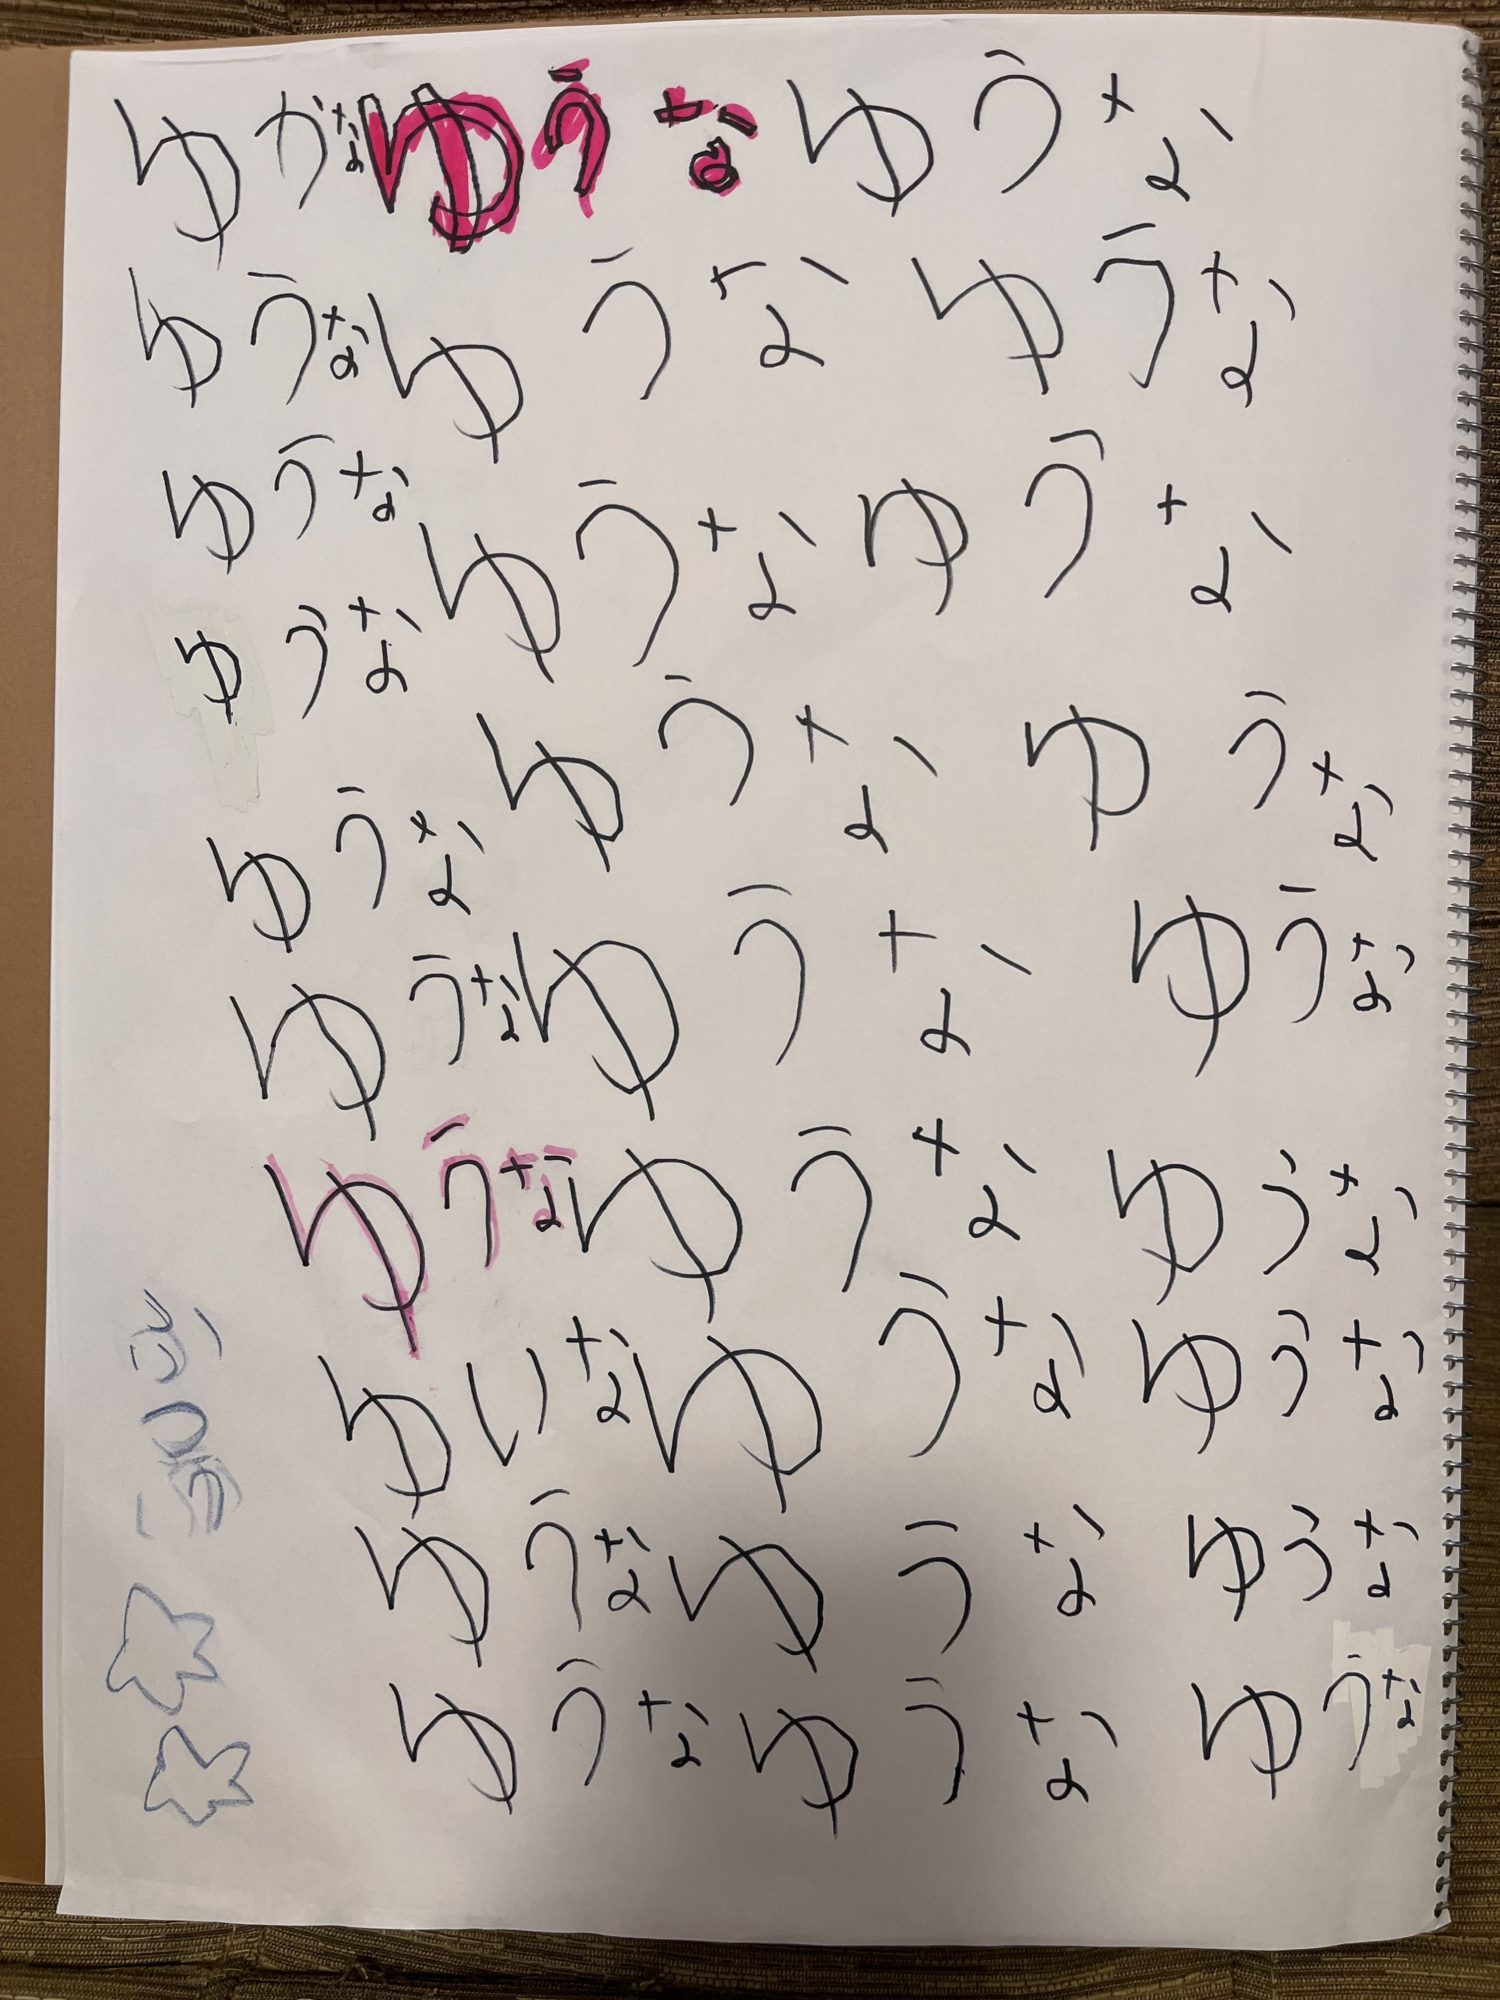 ゆかな ゆうな ゆうな
ゆうな ゆうな ゆうな
ゆうな ゆうな ゆうな
ゆうな
ゆうな ゆうな ゆうな
ゆうな ゆうな ゆうな
ゆうな ゆうな ゆうな
ゆいな ゆうな ゆうな
ゆうな ゆうな ゆうな
ゆうな ゆうな ゆうな